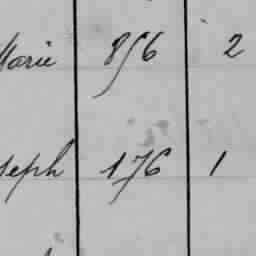 Marie 856 2
seph 176 1